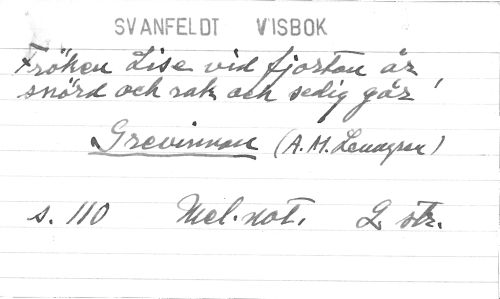 SVANFELDT VISBOK
Fröken Lise vid fjorton år,
snörd och rak och sedig går
Grevinnan (A.M. Lenngren)
s. 110 Mel. not. 2 str.